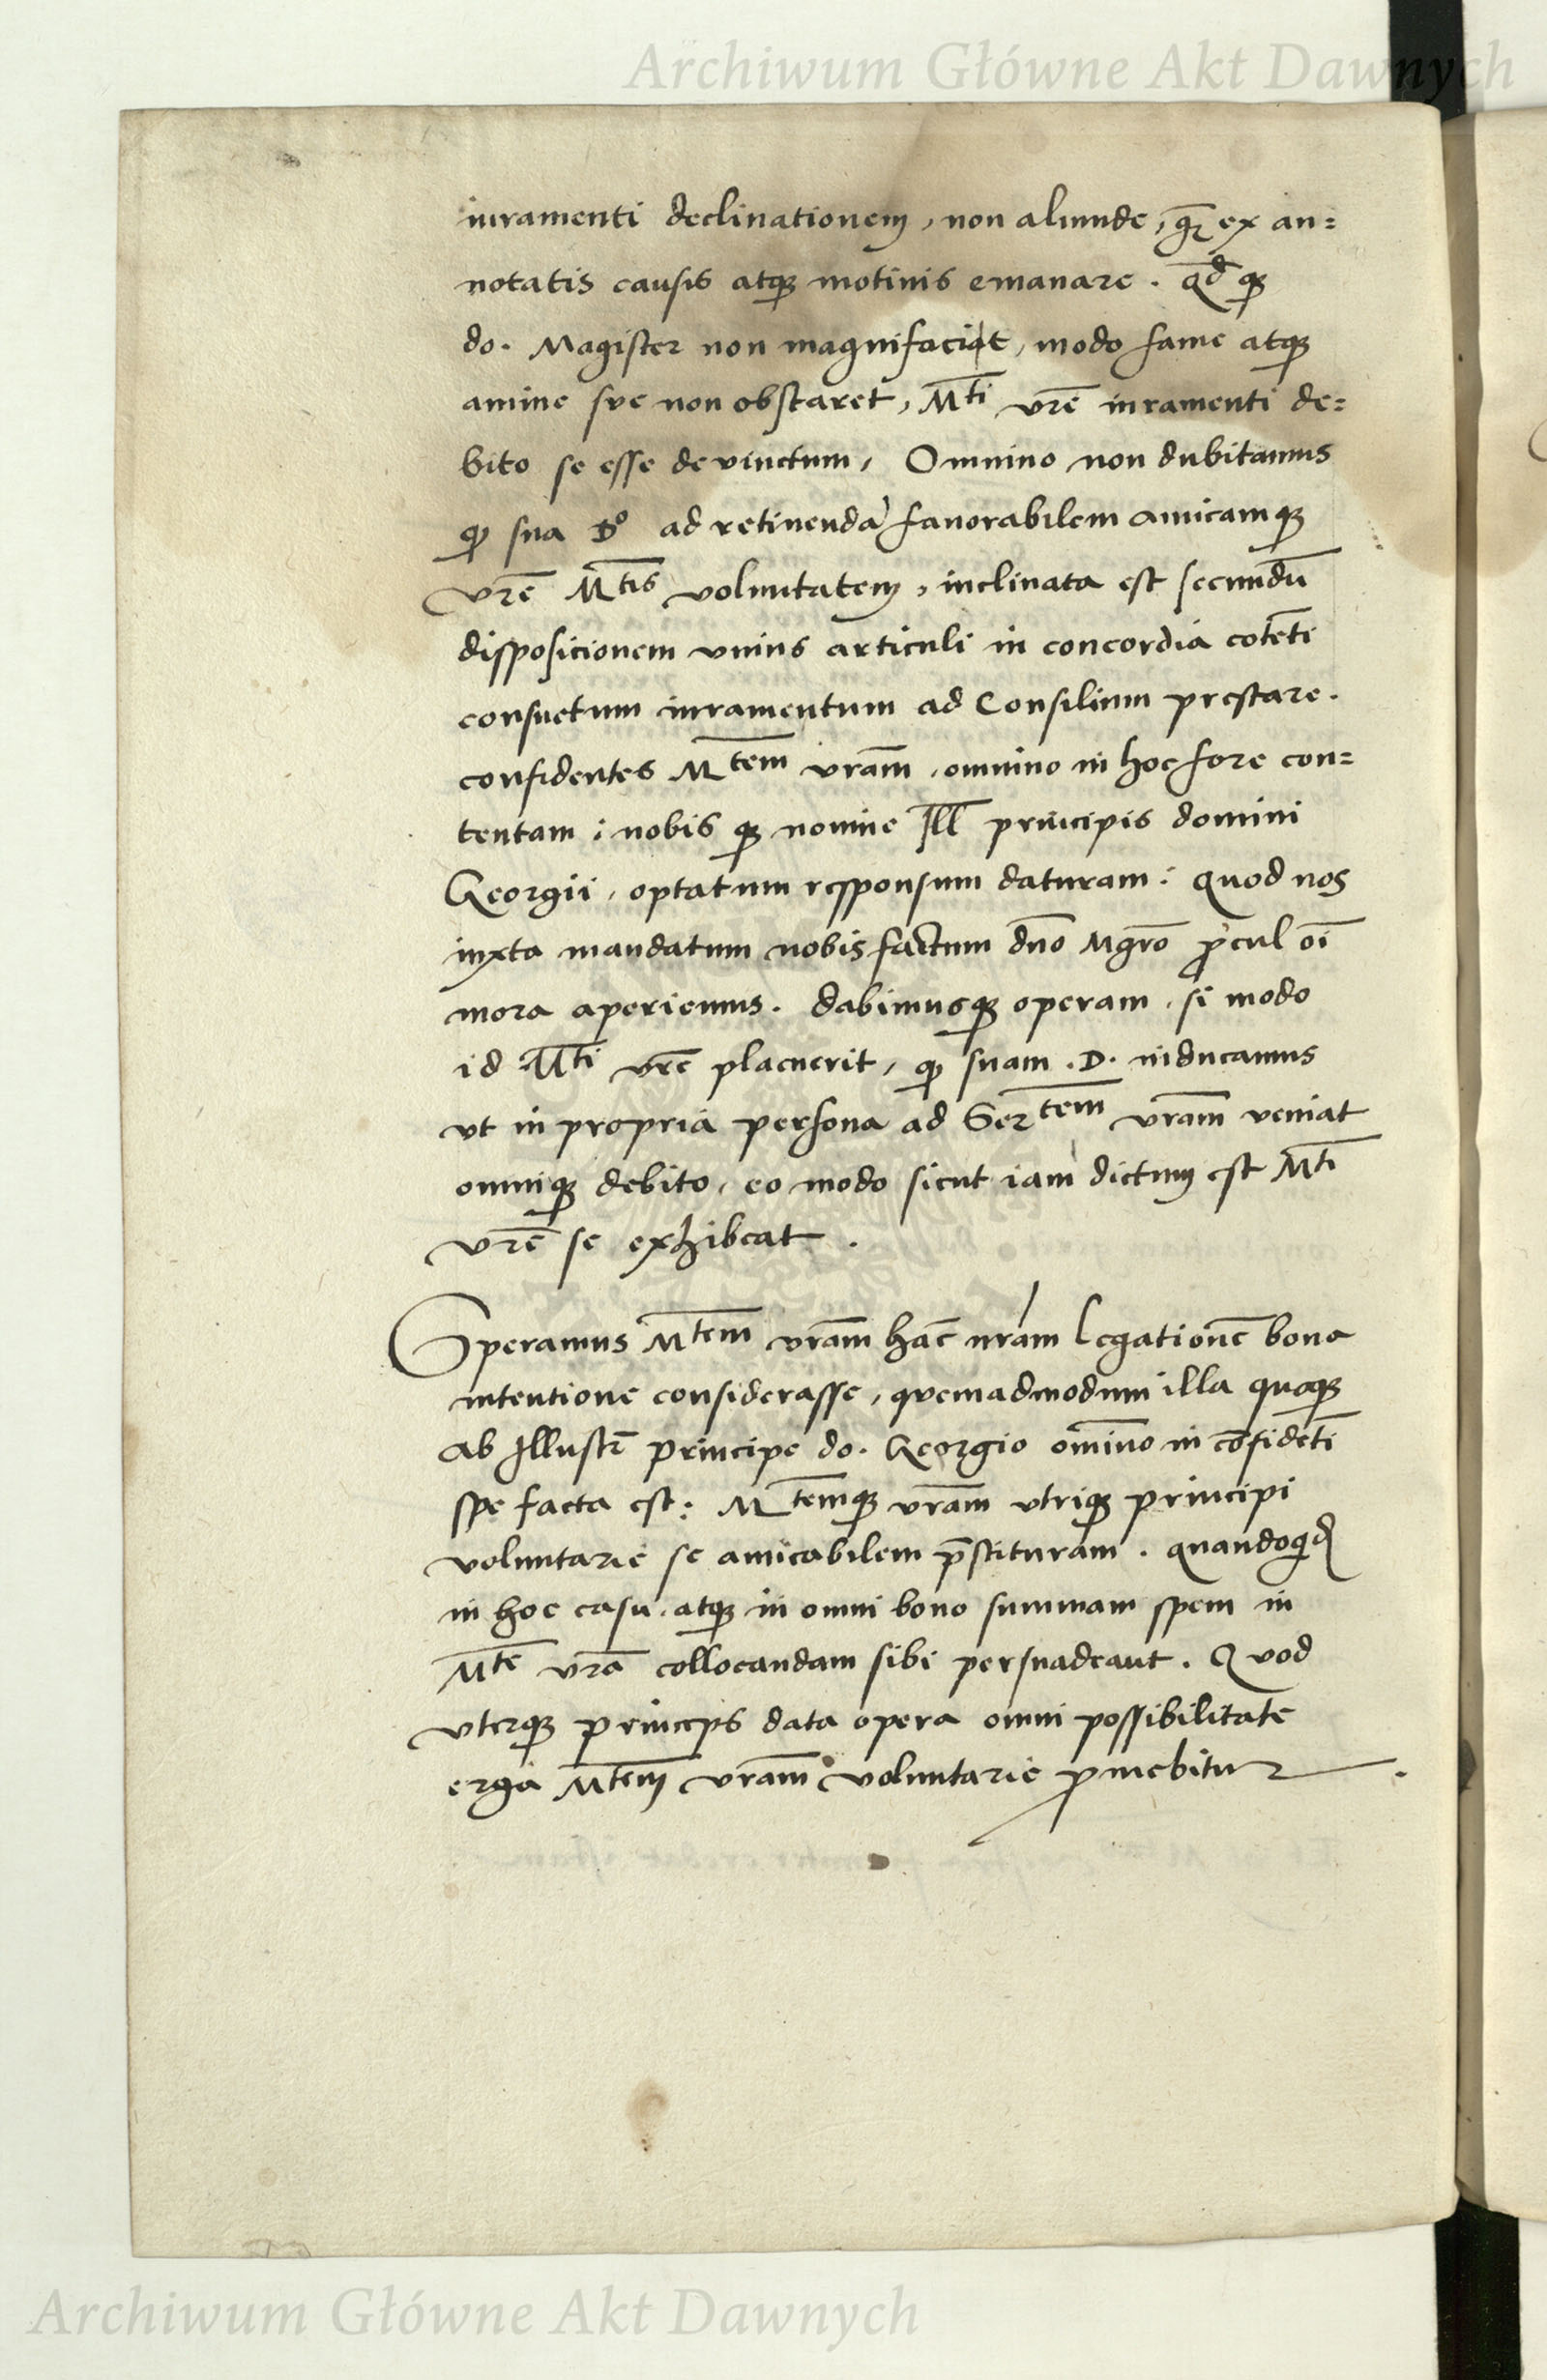 Archiwum Główne Akt Dawnych
iuramenti declinationem, non aliunde, qȝ ex an=
notatis causis atqȝ motiuis emanare. Qd qȝ
do. Magister non magnifaciat, modo fame atqȝ
anime sue non obstaret, Mti vrē iuramenti de=
bito se esse devinctum, Omnino non dubitamus
qȝ sua Do ad retinendā fauorabilem amicamqȝ
vrē Mtis voluntatem, inclinata est secundū
disposicionem vnius articuli in concordia cōtēti
consuetum iuramentum ad Consilium prestare.
confidentes Mtem vrām, omnino in hoc fore con=
tentam: nobis qȝ nomine Ill principis domini
Georgii, optatum responsum daturam: quod nos
iuxta mandatum nobis factum dno Mgro procul oī
mora aperiemus. dabimusqȝ operam, si modo
id Mti vrē placuerit, qȝ suam .D. inducamus
vt in propria persona ad Sertem vrām veniat
omniqȝ debito, eo modo sicut iam dictum est Mti
vrē se exhibeat.
Speramus Mtem vrām hāc nrām legationē bona
intentione considerasse, quemadmodum illa quoqȝ
ab Illustr̄ principe do. Georgio omīno in cōfidēti
spe facta est: Mtemqȝ vrām vtriqȝ principi
voluntarie se amicabilem p̄stituram. quandoqd
in hoc casu, atqȝ in omni bono summam spem in
Mte vrā collocandam sibi persuadeant. Quod
vterqȝ princeps data opera omni possibilitate
erga Mtem vrām voluntarie promebitur.
Archiwum Główne Akt Dawnych